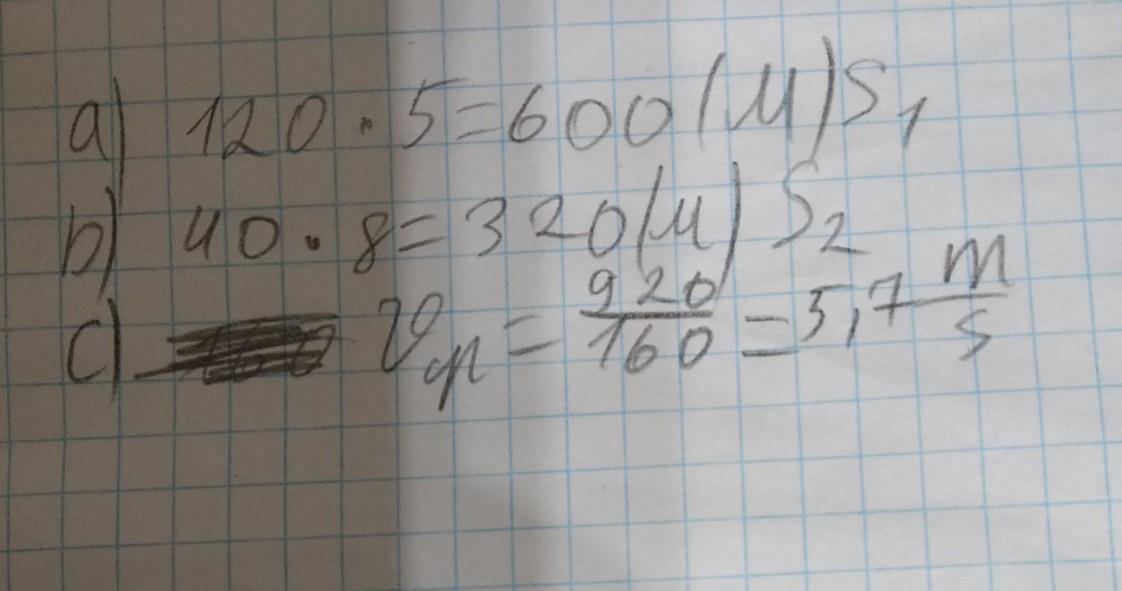 a) 120 · 5 = 600 (м) S₁
b) 40 · 8 = 320 (м) S₂
c) 𝒱ср = 920/160 = 5,7 m/s